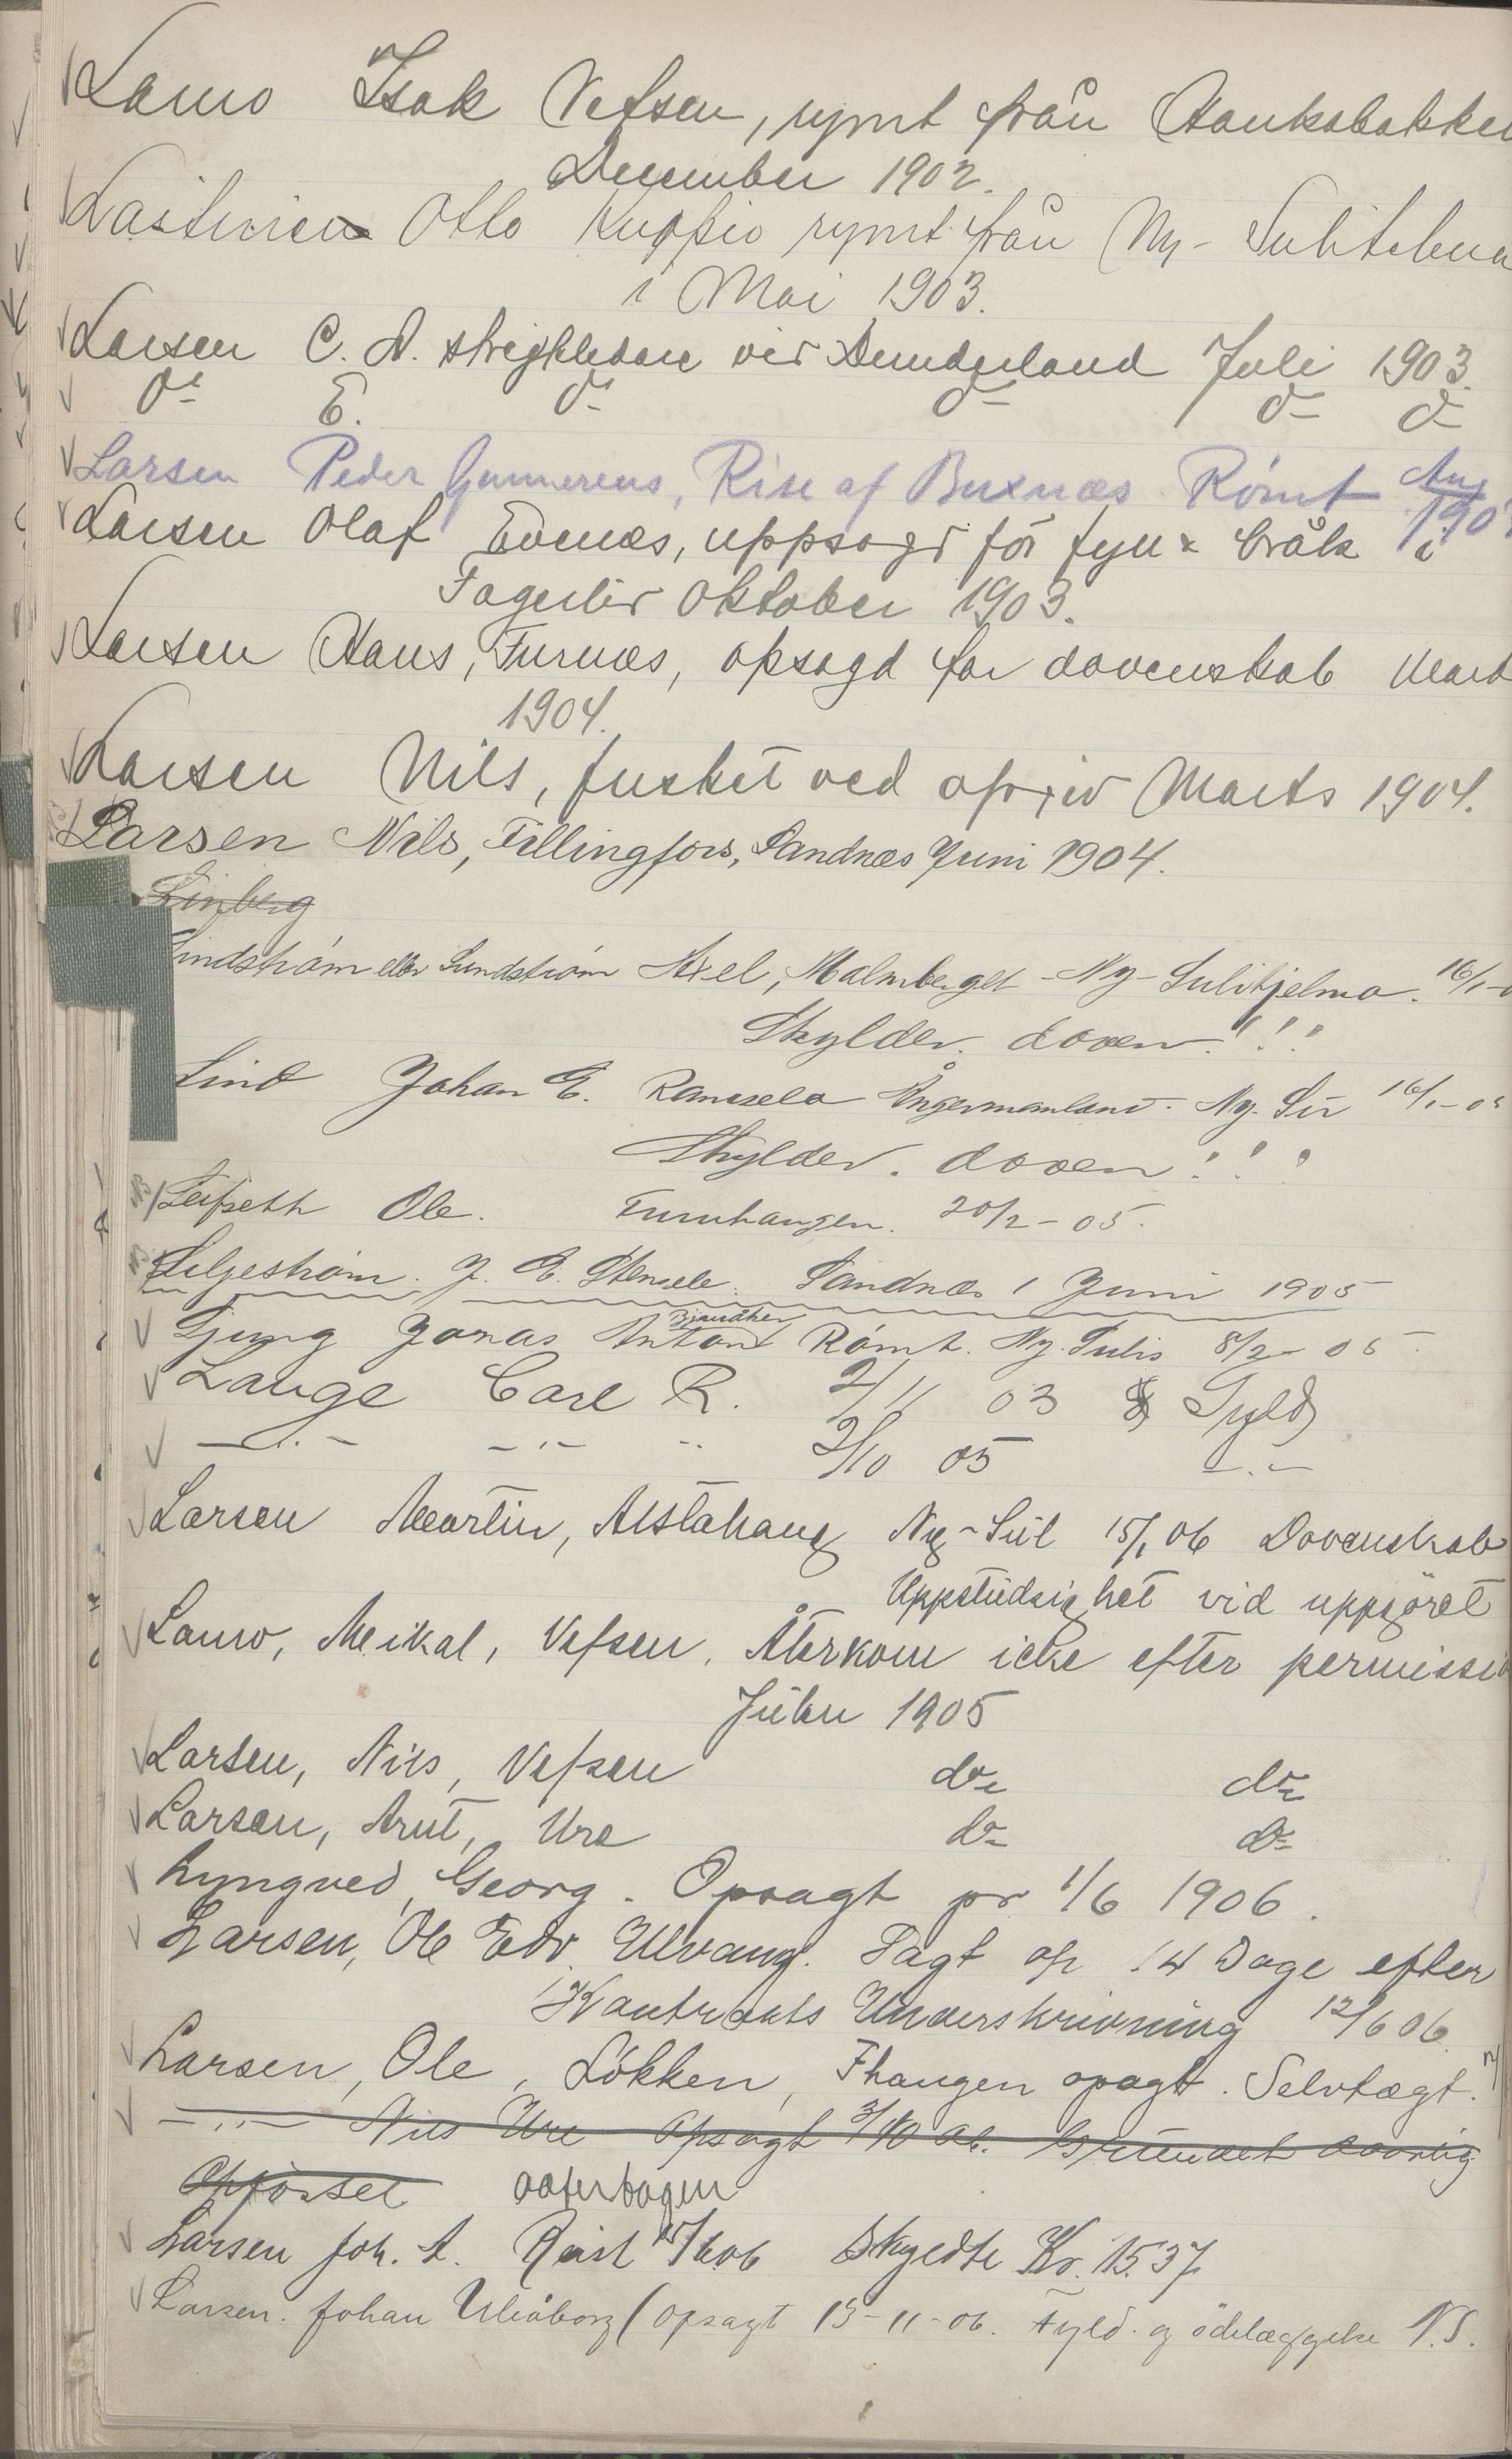 Lamo Isak Vefsen, rymt från Hankabakken
December 1902.
Lastinien Otto Kuopio rymt från Ny-Sulitelma
i Mai 1903.
Larsen C. A. strejkledare vid Dunderland Juli 1903.
do E. do do do do
Larsen Peder Gunnerius, Rise af Buxnæs Römt Aug 190
Larsen Olaf Evenæs, uppsagd för fyll & bråk i
Fagerlid Oktober 1903.
Larsen Hans, Furnæs, opsagd for dovenskab Marts
1904.
Larsen Nils, fusket ved Marts 1904.
Larsen Nils, Fillingfors, Sandnæs Juni 1904.
Linberg
Lindström eller Lundström Axel, Malmberget - Ny-Sulitjelma. 16/1-0
Skylder. doven!!!
Lind Johan E. Ramsela Ångermanland. Ny. Su 16/1-05
Skylder. doven!!!
NB/ Leifseth Ole. Furuhaugen. 20/2-05.
NB Liljeström. J. E. Stensele. Sandnæs 1 Juni 1905
Bjuråker
Ljung Jonas Anton Römt. Ny. Sulis 8/2-05
Lange Carl R. 2/11 03 Fyld
-"- -"- " 2/10 05 -"-
Larsen Martin, Alstahaug Ny-Sul 15/1 06 Dovenskab
Uppstudsighet vid uppgöret
Lamo, Meikal, Vefsen, Återkom icke efter permissio
Julen 1905
Larsen, Nils, Vefsen do do
Larsen, Arnt, Ure do do
Lyngved, Georg. Opsagt pr 1/6 1906.
Larsen, Ole Edv. Ulvang. Sagt op 14 Dage efter
Kontrakts Underskrivning 12/6 06.
Larsen, Ole, Lökken, Fhaugen opsagt. Selvtægt.
-"- Nils Ure Opsagt 3/10 06. Grundet daarlig
Opförsel
Larsen Joh. A. Reist 15/6 06 Skyldte Kr. 15.37
Larsen. Johan Uleåborg (opsagt 13-11-06. Fyld. og ödelæggelse N.S.